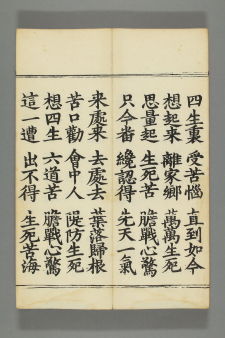 四生裏 受苦惱 直到如今
想起來 離家鄉 萬萬生死
思量起 生死苦 膽戰心驚
只今番 纔認得 先天一氣
來處來 去處去 葉落歸根
苦口勸 會中人 隄防生死
想四生 六道苦 膽戰心驚
這一遭 出不得 生死苦海